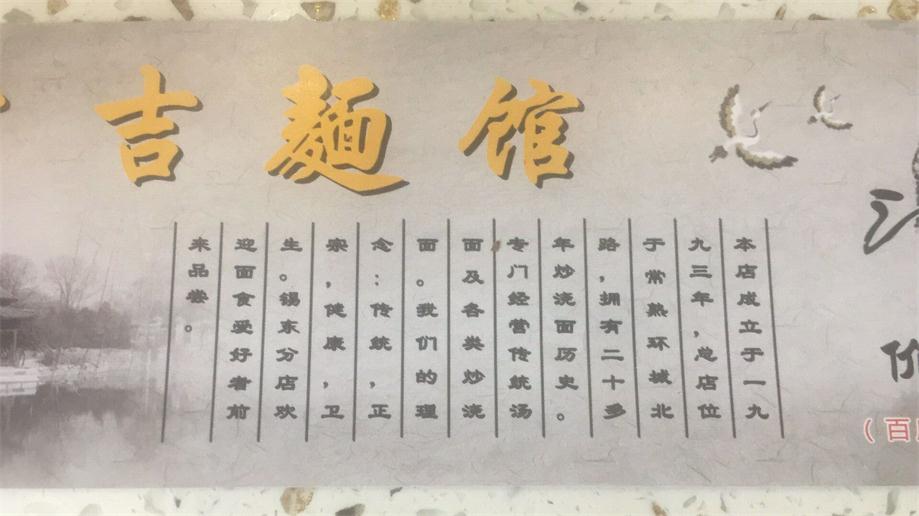 吉麵馆
本店成立于一九
九三年，总店位
于常熟环城北
路，拥有二十多
年炒浇面历史。
专门经营传统汤
面及各类炒浇
面。我们的理
念：传统，正
宗，健康，卫
生。锡东分店欢
迎面食爱好者前
来品尝。
（百